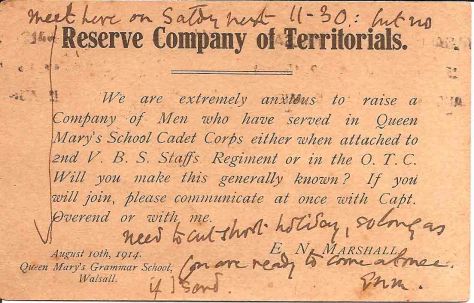 meet here on Satdy next 11-30: but no
Reserve Company of Territorials.
We are extremely anxious to raise a
Company of Men who have served in Queen
Mary's School Cadet Corps either when attached to
2nd V. B. S. Staffs Regiment or in the O. T. C.
Will you make this generally known? If you
will join, please communicate at once with Capt.
Overend or with me.
need to cut short holiday, so long as
E. N. MARSHALL,
August 10th, 1914.
Queen Mary's Grammar School,
Walsall.
you are ready to come at once
if I send.
ENM.